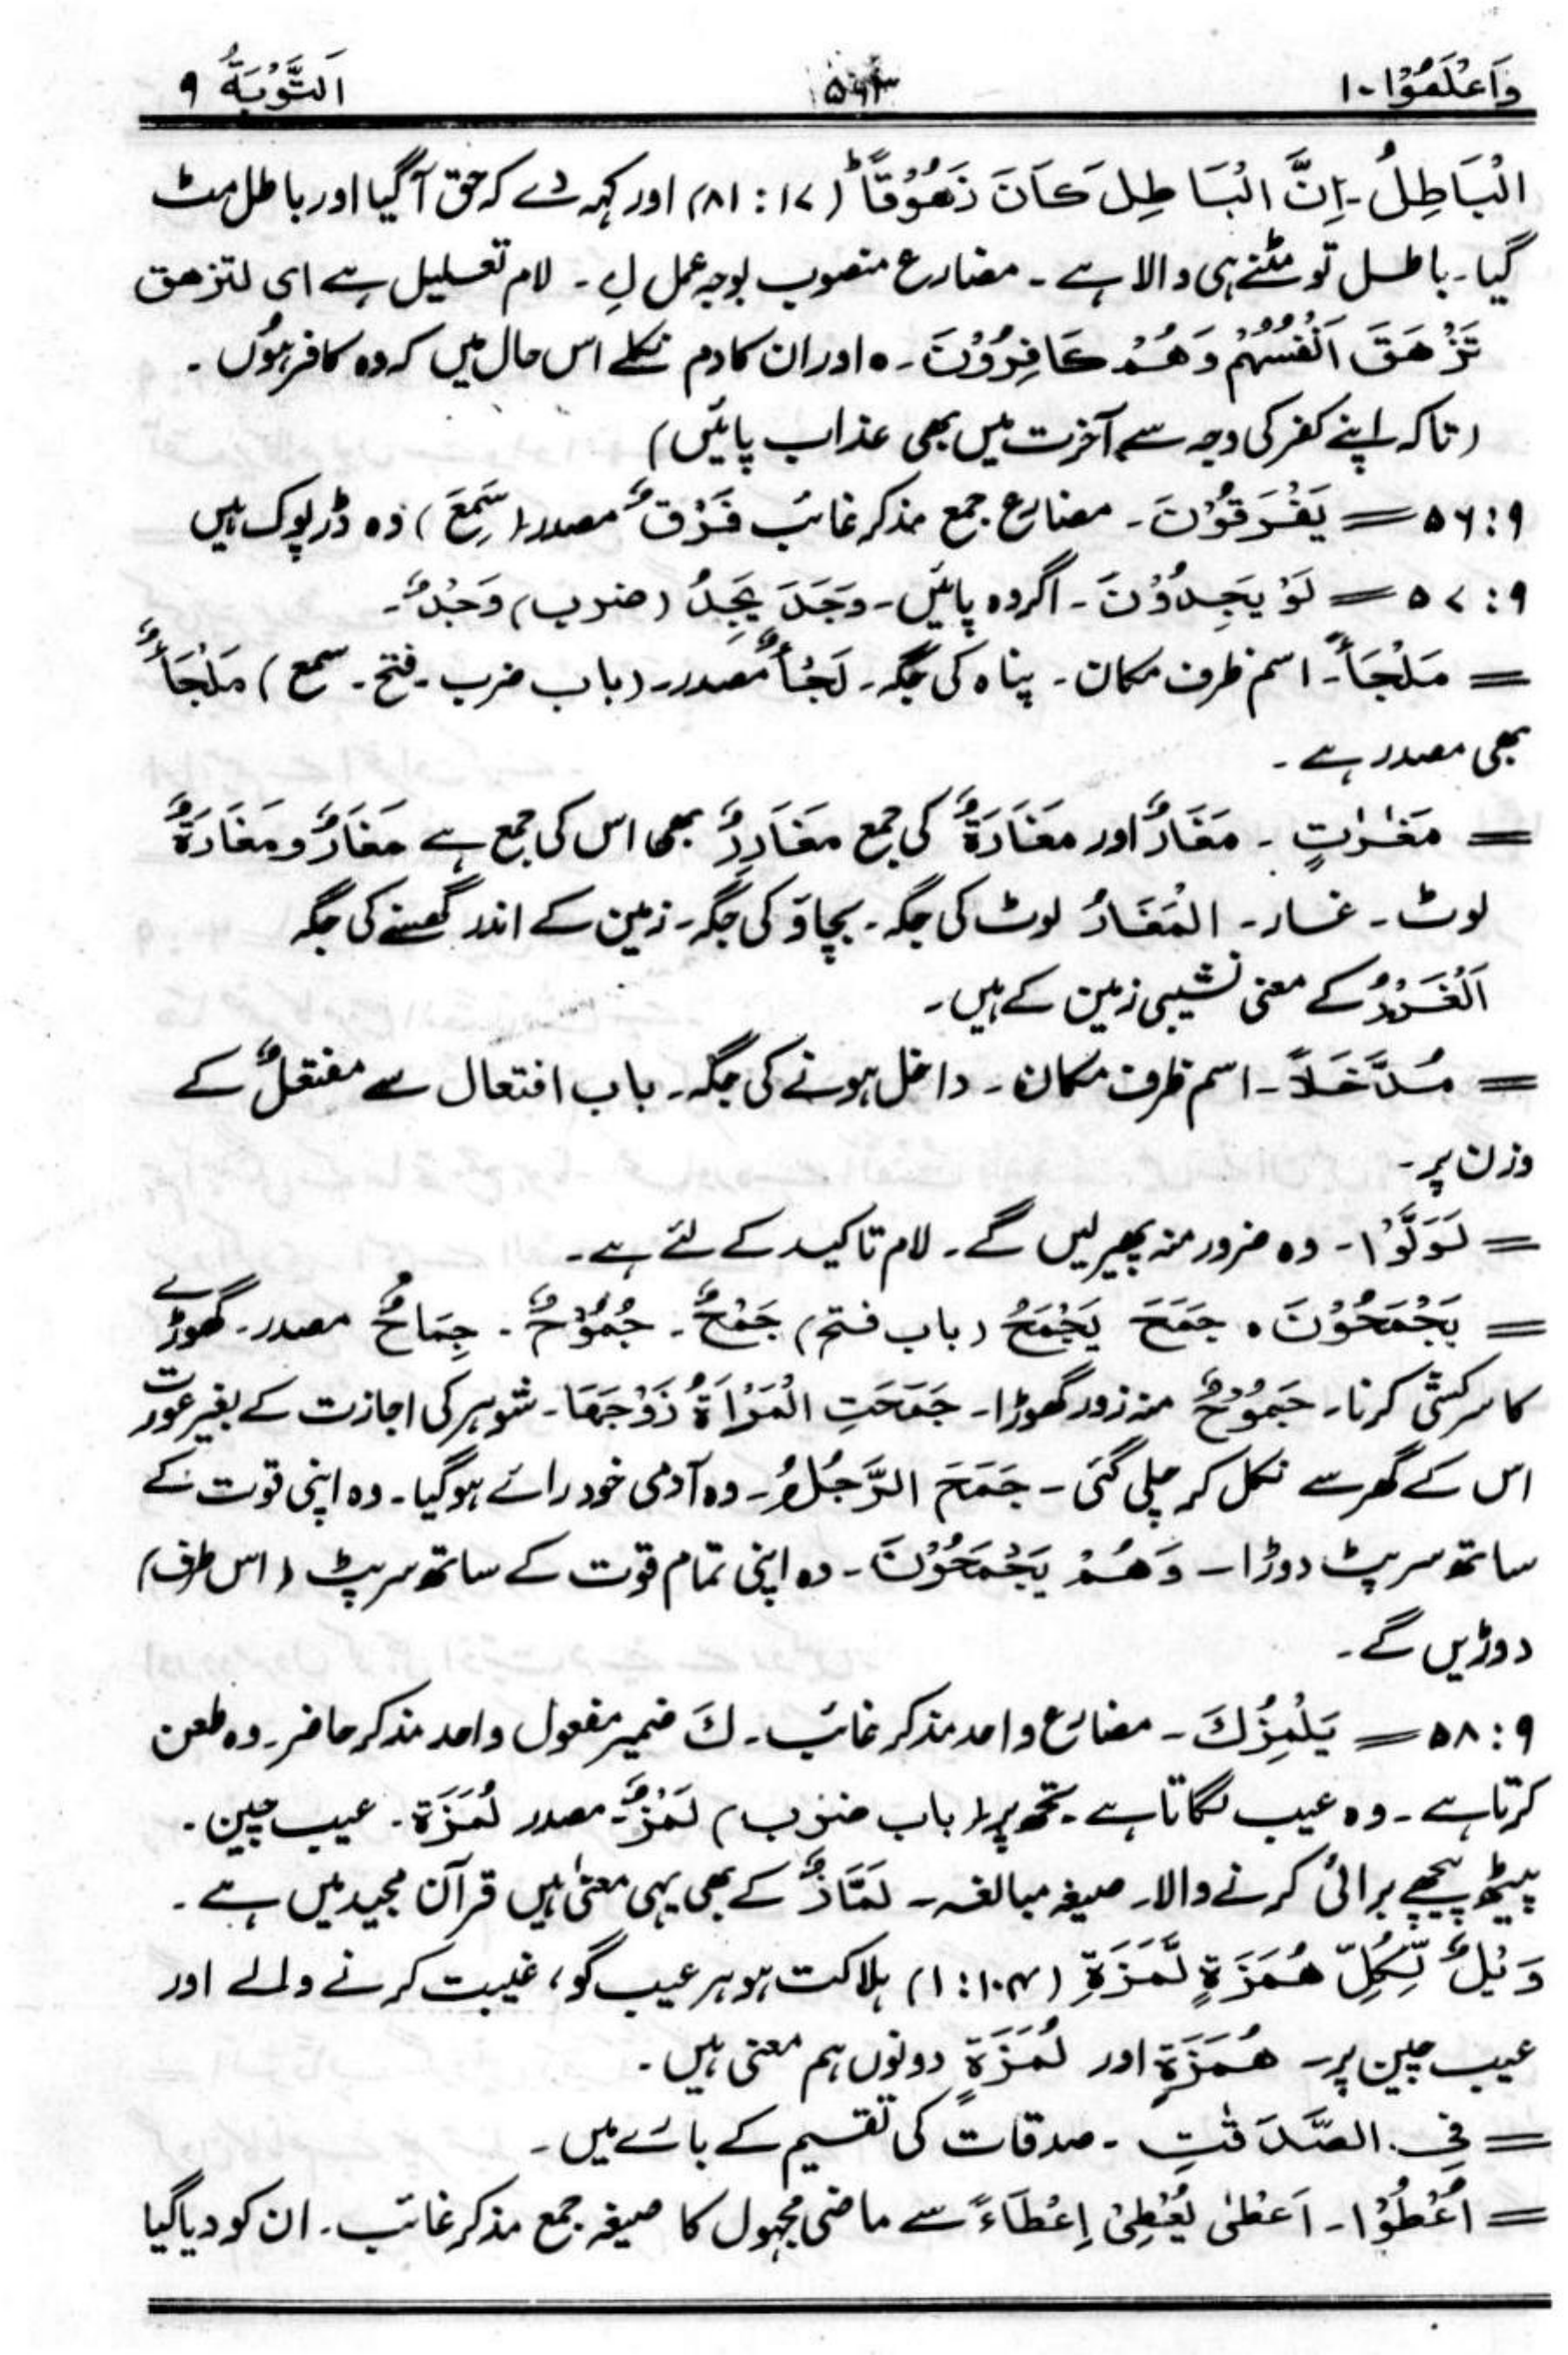 وَاعْلَمُوْا ۱۰
اَلتَّوْبَةُ ۹
الْبَاطِلُ۔ اِنَّ الْبَاطِلَ كَانَ زَهُوْقًاؕ (۱۷ : ۸۱) اور کہہ دے کہ حق آ گیا اور باطل مٹ
گیا۔ باطل تو مٹنے ہی والا ہے ۔ مضارع منصوب بوجہ عمل لِ ۔ لام تعلیل ہے ای لتزهق
تَزْهَقَ اَنْفُسُهُمْ وَهُمْ كَافِرُوْنَ ۔ ہ اور ان کا دم نکلے اس حال میں کہ وہ کافر ہوں ۔
(تاکہ اپنے کفر کی وجہ سے آخرت میں بھی عذاب پائیں)
۹ : ۵۶ = يَفْرَقُوْنَ ۔ مضارع جمع مذکر غائب فَرَقٌ مصدر (سَمِعَ) وہ ڈرپوک ہیں
۹ : ۵۷ = لَوْ يَجِدُوْنَ ۔ اگر وہ پائیں ۔ وَجَدَ يَجِدُ (ضرب) وَجْدٌ ۔
= مَلْجَأً ۔ اسم ظرف مکان ۔ پناہ کی جگہ ۔ لَجْأٌ مصدر ۔ (باب ضرب ۔ فتح ۔ سمع) مَلْجَأٌ
بھی مصدر ہے ۔
= مَغٰرٰتٍ ۔ مَغَارٌ اور مَغَارَةٌ کی جمع مَغَاوِرُ بھی اس کی جمع ہے مَغَارٌ و مَغَارَةٌ
لوٹ ۔ غار ۔ الْمَغَارُ لوٹ کی جگہ ۔ بچاؤ کی جگہ ۔ زمین کے اندر گھسنے کی جگہ
اَلْغَوْرُ کے معنی نشیبی زمین کے ہیں ۔
= مُدَّخَلًا ۔ اسم ظرف مکان ۔ داخل ہونے کی جگہ ۔ باب افتعال سے مفتعلٌ کے
وزن پر ۔
= لَوَلَّوْا ۔ وہ ضرور منہ پھیر لیں گے ۔ لام تاکید کے لئے ہے ۔
= يَجْمَحُوْنَ ہ جَمَحَ يَجْمَحُ (باب فتح) جَمْحٌ ۔ جُمُوْحٌ ۔ جِمَاحٌ مصدر ۔ گھوڑے
کا سرکشی کرنا ۔ جَمُوْحٌ منہ زور گھوڑا ۔ جَمَحَتِ الْمَرْاَةُ زَوْجَهَا ۔ شوہر کی اجازت کے بغیر عورت
اس کے گھر سے نکل کر چلی گئی ۔ جَمَحَ الرَّجُلُ ۔ وہ آدمی خود رائے ہو گیا ۔ وہ اپنی قوت کے
ساتھ سرپٹ دوڑا ۔ وَهُمْ يَجْمَحُوْنَ ۔ وہ اپنی تمام قوت کے ساتھ سرپٹ (اس طرف)
دوڑیں گے ۔
۹ : ۵۸ = يَلْمِزُكَ ۔ مضارع واحد مذکر غائب ۔ كَ ضمیر مفعول واحد مذکر حاضر ۔ وہ طعن
کرتا ہے ۔ وہ عیب لگاتا ہے ۔ تجھ پر (باب ضرب) لَمْزٌ ۔ مصدر لُمَزَة ۔ عیب چین ۔
پیٹھ پیچھے برائی کرنے والا ۔ صیغہ مبالغہ ۔ لَمَّازٌ کے بھی یہی معنیٰ ہیں قرآن مجید میں ہے ۔
وَيْلٌ لِّكُلِّ هُمَزَةٍ لُّمَزَةِ (۱۰۴ : ۱) ہلاکت ہو ہر عیب گو ، غیبت کرنے والے اور
عیب چین پر ۔ هُمَزَةٍ اور لُمَزَةٍ دونوں ہم معنی ہیں ۔
= فِی الصَّدَقٰتِ ۔ صدقات کی تقسیم کے بارے میں ۔
= اُعْطُوْا ۔ اَعْطٰی يُعْطِیْ اِعْطَاءً سے ماضی مجہول کا صیغہ جمع مذکر غائب ۔ ان کو دیا گیا